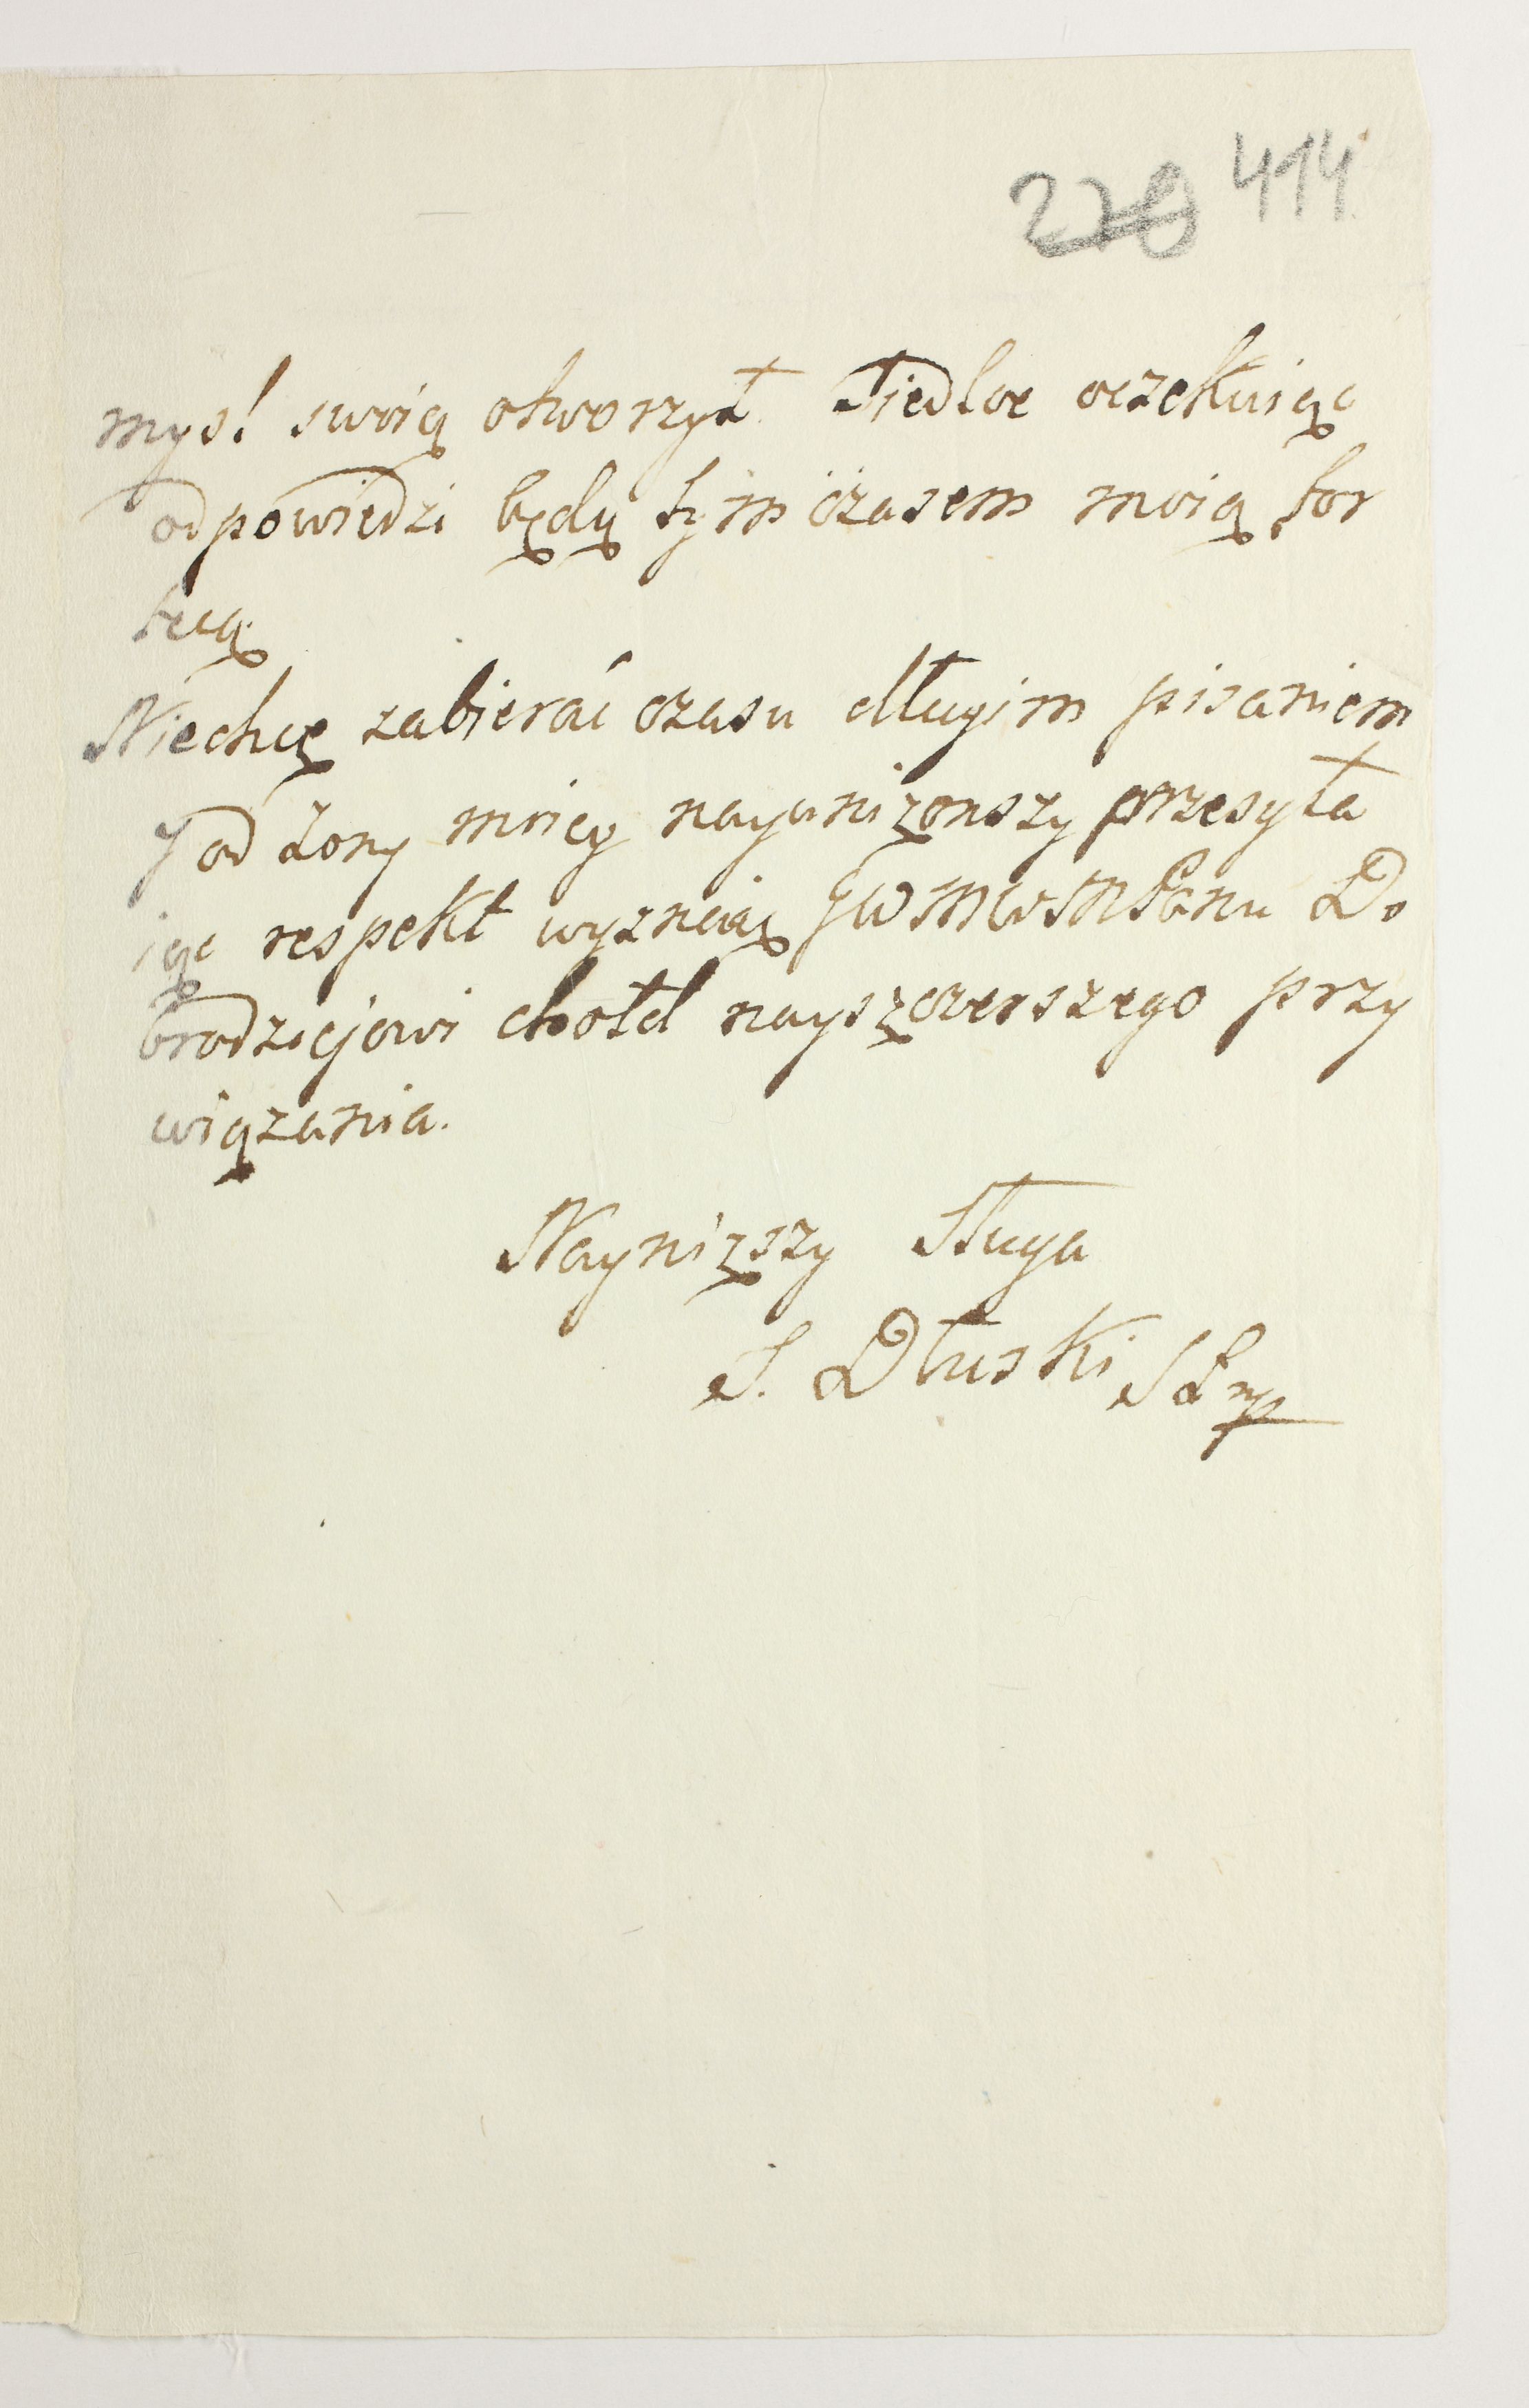 220 414
mysl swoią otworzył. Siedlce oczekuiąc
odpowiedzi będą tymczasem moią for
tecą.
Niechcę zabierać czasu długim pisaniem
Y od Żony moiey nayuniżonszy przesyła
iąc respekt wyznaię JW Panu Do
brodziejowi chołd nayszczerszego przy
wiązania.
Nayniższy Sługa
S. Dłuski SL mp